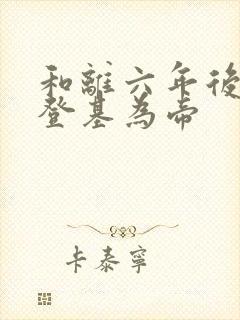 和離六年後
登基為帝
卡泰寧